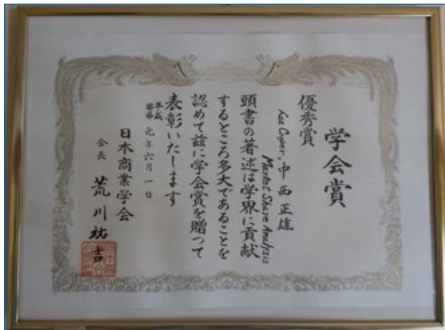 学会賞
優秀賞
Lee Cooper・中西正雄
Market Share Analysis
頭書の著述は学界に貢献
するところ多大であることを
認めて茲に学会賞を贈って
表彰いたします
平成
元年六月一日
日本商業学会
会長 荒川祐吉